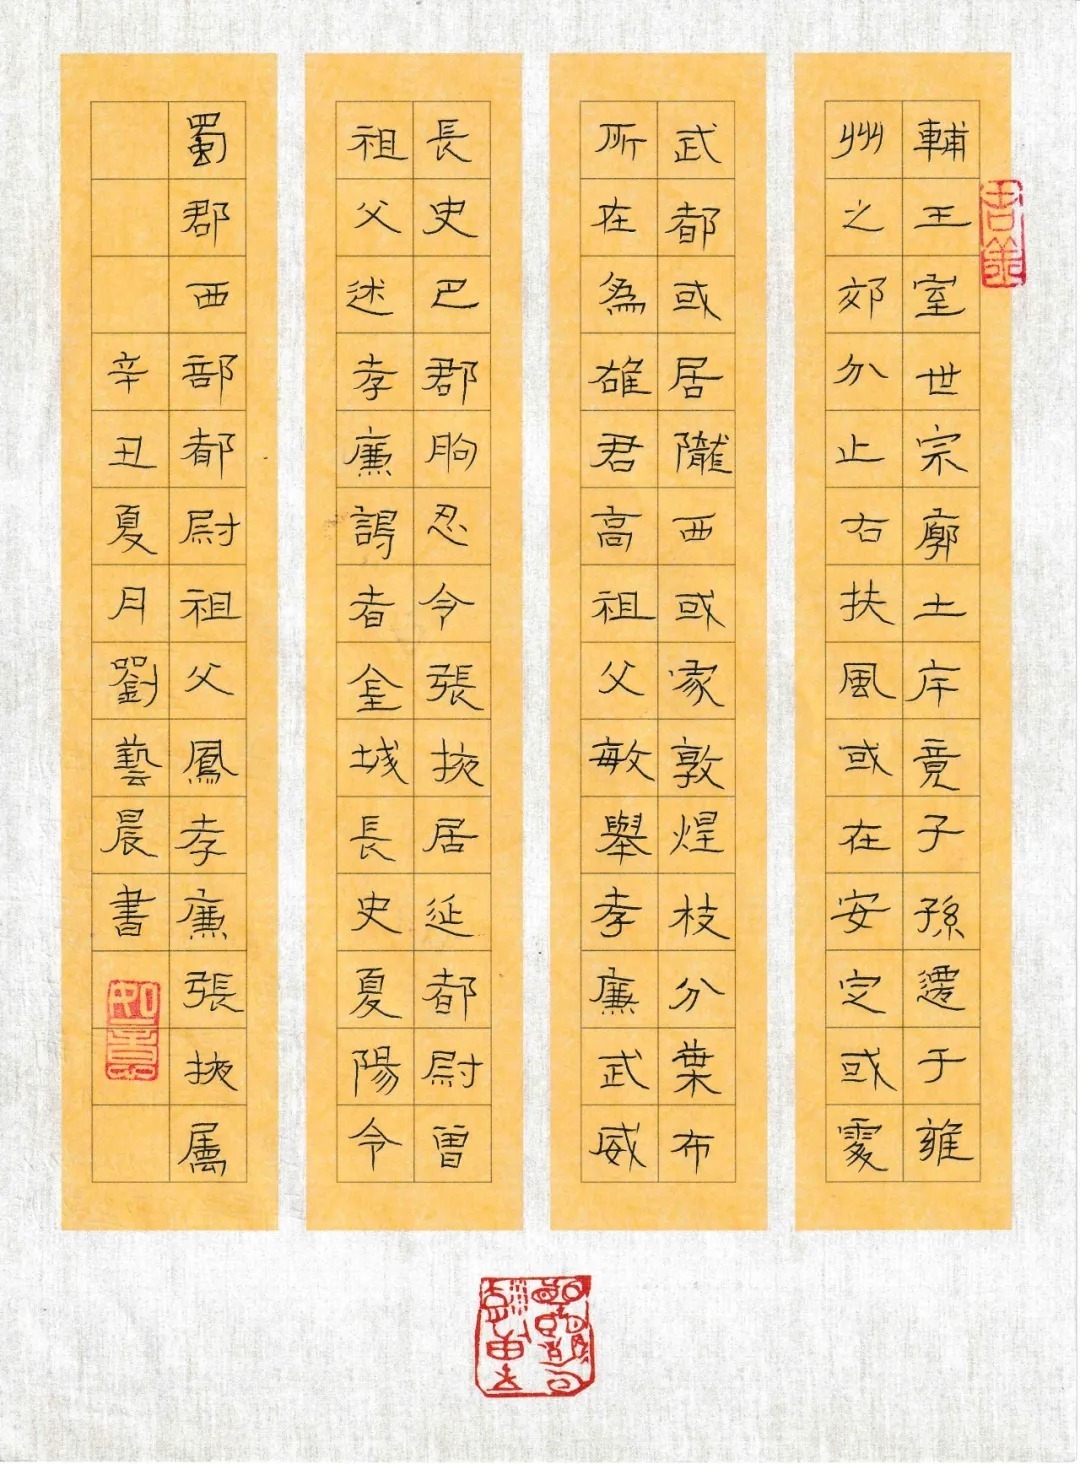 輔王室世宗廓土斥竟子孫遷于雍
州之郊分止右扶風或在安定或處
武都或居隴西或家敦煌枝分葉布
所在為雄君高祖父敏舉孝廉武威
長史巴郡朐忍令張掖居延都尉曾
祖父述孝廉謁者金城長史夏陽令
蜀郡西部都尉祖父鳳孝廉張掖属
辛丑夏月劉藝晨書